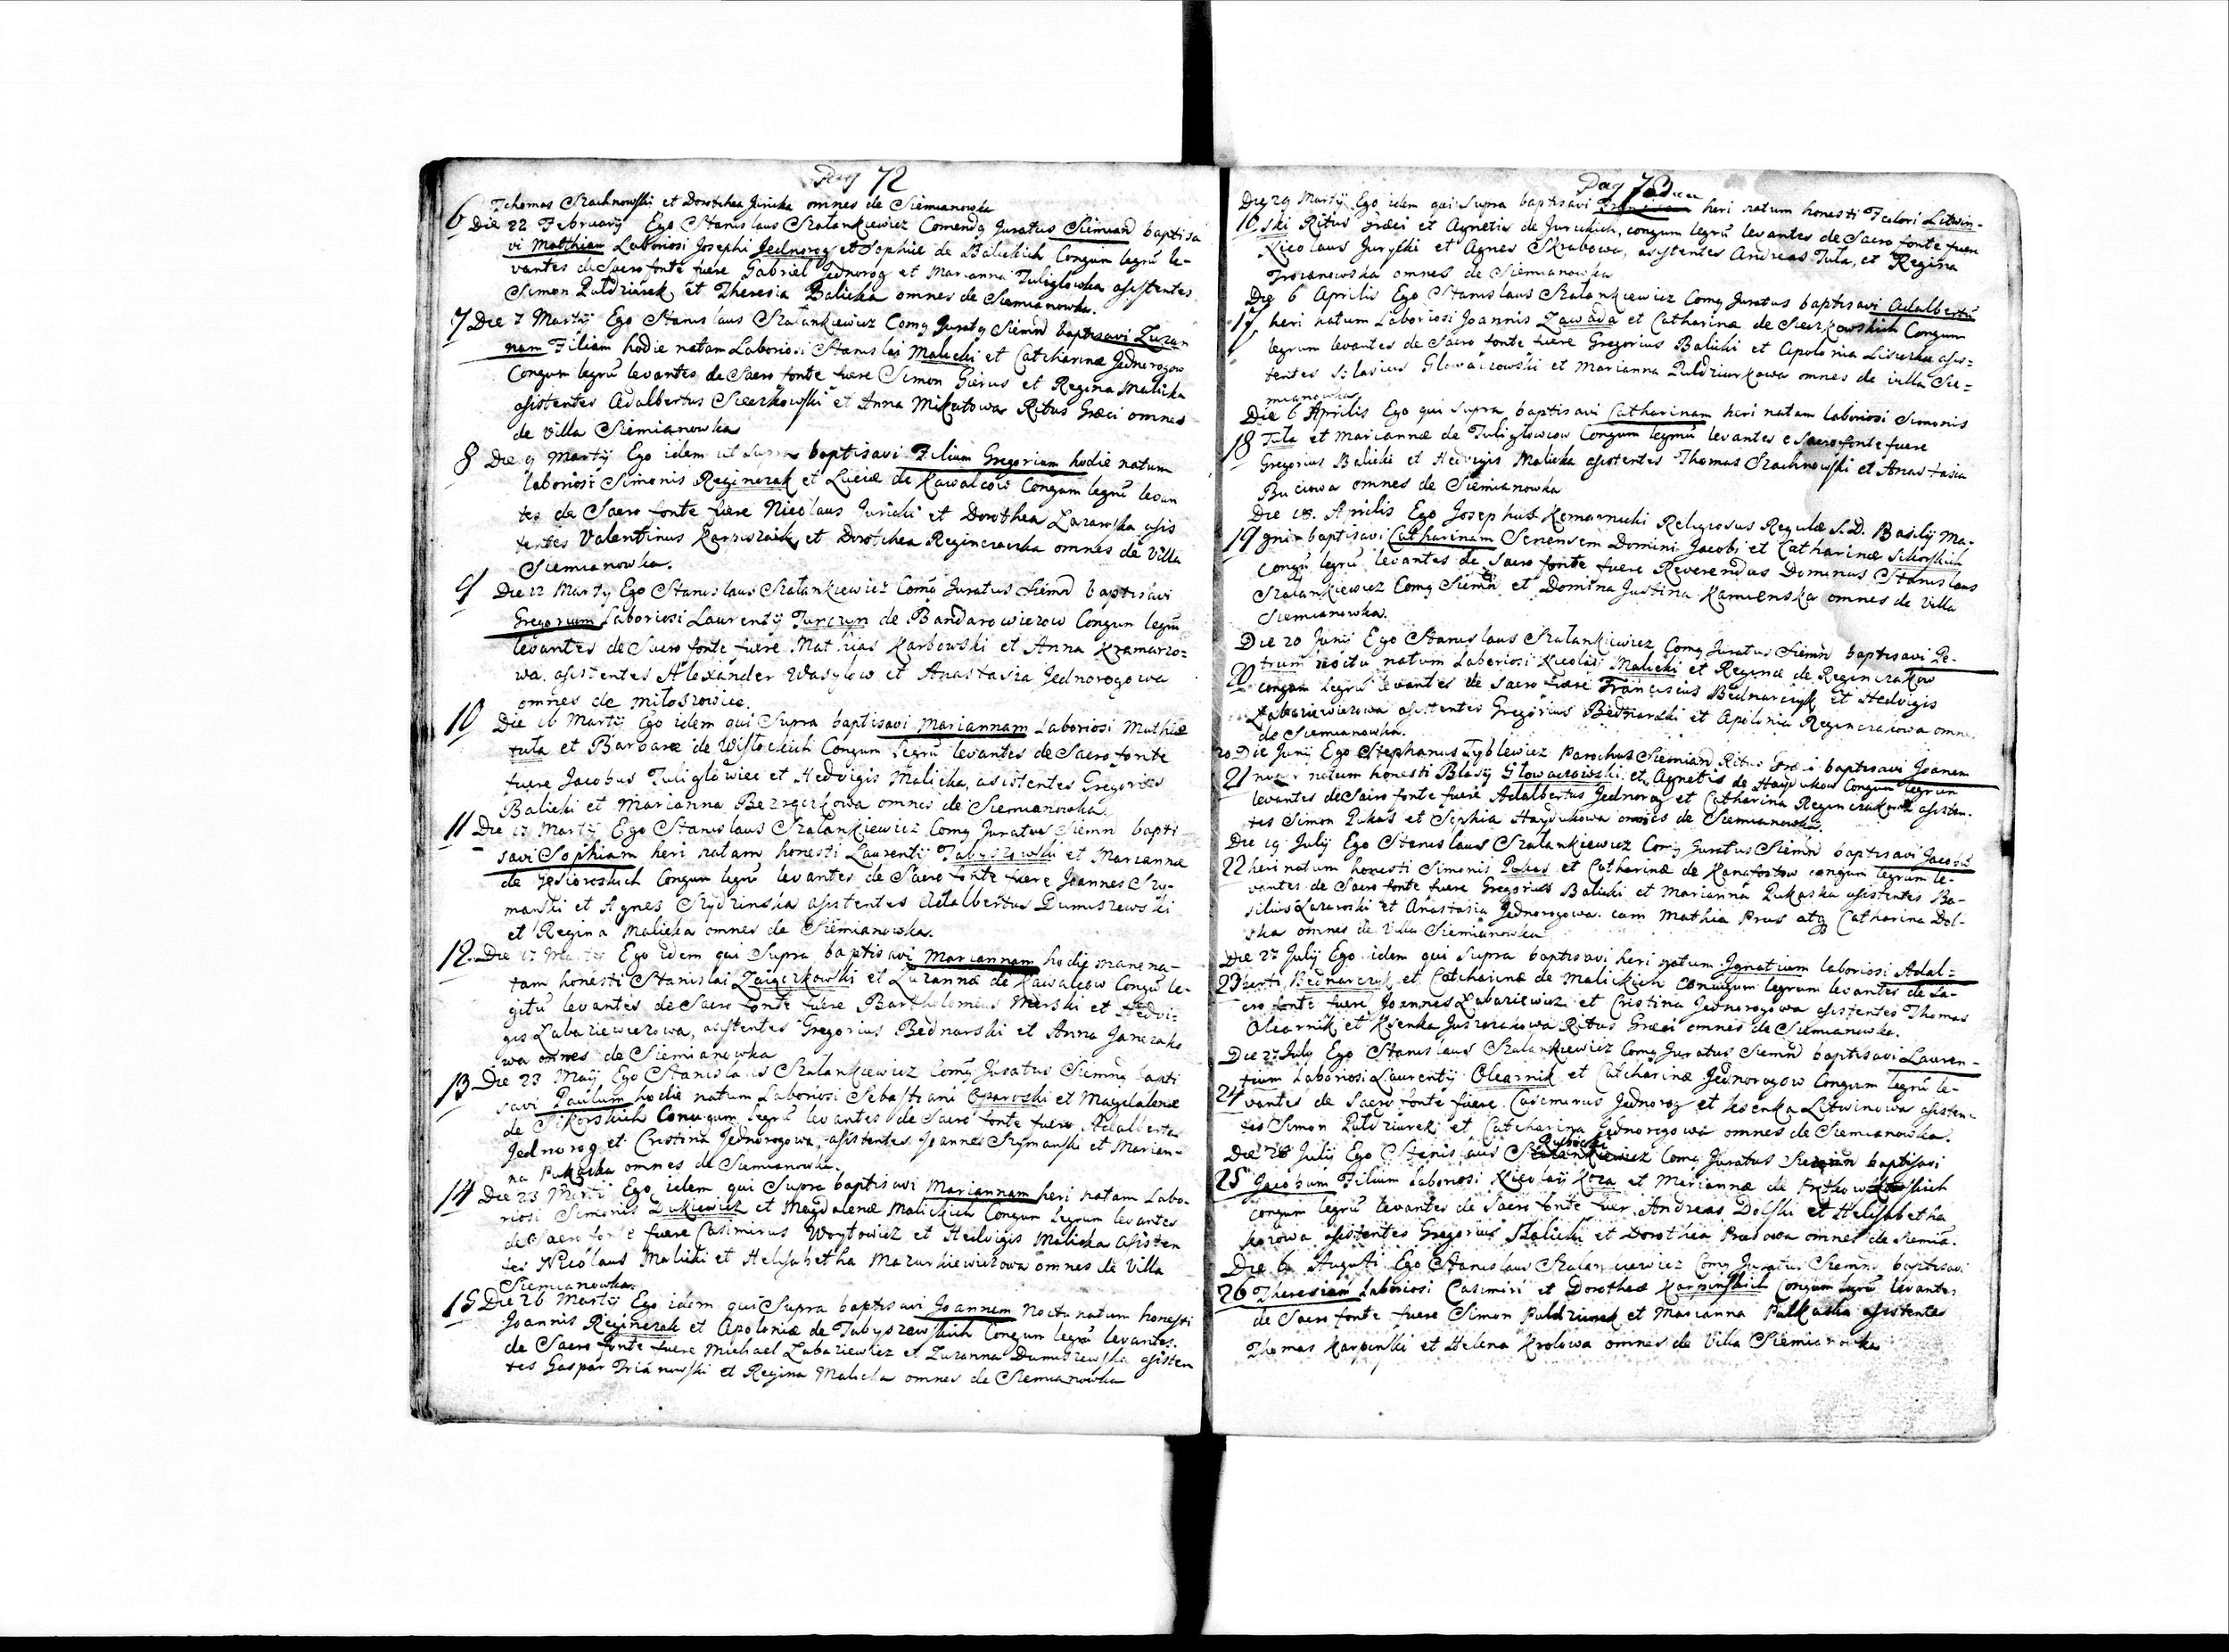 Pag 72
Thomas Szachnowski et Dorothea Juricka omnes de Siemianowka
6 Die 22 February Ego Stanislaus Szalankiewicz Comendg Juratus Siemian baptisa
vi Matthiam Laboriosi Josephi Jednorog et Sophiæ de Balickich Congum legrũ le-
vantes de Sacro fonte fuere Gabriel Jednorog et Marianna Tuliglowka asistentes
Simon Puldziurek et Theresia Balicka omnes de Siemianowka.
7 Die 7 Martij Ego Stanislaus Szalankiewicz Comg Juratg Siemn baptisavi Zuzan
nam Filiam hodie natam Laboriosi Stanislai Malicki et Catharinæ Jednorogow
Congum legrũ levantes de Sacro fonte fuere Simon Gierus et Regina Malicka
asistentes Adalbertus Sieczkowski et Anna Mikutowa Ritus Græci omnes
de villa Siemianowka
8 Die 9 Martij Ego idem ut supra baptisavi Filium Gregorium hodie natum
laboriosi Simonis Reginczak et Luciæ de Kawalcow Congum legrũ levan
tes de Sacro fonte fuere Nicolaus Juricki et Dorothea Lazarska asis
tentes Valentinus Karpisziak et Dorothea Reginczaczka omnes de Villa
Siemianowka.
9 Die 12 Martij Ego Stanislaus Szalankiewicz Comg Juratus Siemn baptisavi
Gregorium Laboriosi Laurentij Turczyn de Bandarowiczow Congun legrũ
levantes de Sacro fonte fuere Mathias Karbowski et Anna Kramarzo=
wa asistentes Alexander Wasylow et Anastasia Jednorogowa
omnes de Miloszowice.
10 Die 16 Martij Ego idem qui Supra baptisavi Mariannam Laboriosi Mathiæ
Tuta et Barbaræ de Wislockich Congum legrũ levantes de Sacro fonte
fuere Jacobus Tuliglowiec et Hedvigis Malicka, asistentes Gregorius
Balicki et Marianna Bezręczkowa omnes de Siemianowka
11 Die 17 Martij Ego Stanislaus Szalankiewicz Comg Juratus Siemn bapti
savi Sophiam heri natam honesti Laurentij Tabyszowski et Mariannæ
de Gęsioroskich Congum legrũ levantes de Sacro fonte fuere Joannes Szy-
manski et Agnes Szydzinska asistentes Adalbertus Dumiszewski
et Regina Malicka omnes de Siemianowka.
12. Die 17 Martij Ego idem qui Supra baptisavi Mariannam hodie mane na-
tam honesti Stanislai Zaigczkowski et Zuzannæ de Kawalcow Congũ le-
gitũ levantes de Sacro fonte fuere Bartholomeus Merski et Hedvi-
gis Labaziewiczowa, asistentes Gregorius Bednarski et Anna Janczako
wa omnes de Siemianowka
13 Die 23 Maij Ego Stanislaus Szalankiewicz Comg Juratus Siemng bapti
savi Paulum hodie natum Laboriosi Sebastiani Oparoski et Magdalenæ
de Sikorskich Conugum legrũ levantes de Sacro fonte fuere Adalbertus
Jednorog et Cristina Jednorogowa, asistentes Joannes Szymanski et Marian-
na Pukaska omnes de Siemianowka.
14 Die 23 Martij Ego idem qui Supra baptisavi Mariannam heri natam Labo-
riosi Simonis Dukiewicz et Magdalenæ Malickich Congum legrum levantes
de Sacro fonte fuere Casimirus Woytowicz et Hedvigis Malicka Asisten
tes Nicolaus Malicki et Helisabetha Mazurkiewiczowa omnes de Villa
Siemianowka.
15 Die 26 Martij Ego idem qui Supra baptisavi Joannem noctu natum honesti
Joannis Reginczak et Apoloniæ de Tabyszewskich Congum legrũ levantes
de Sacro fonte fuere Michael Labaziewicz et Zuzanna Dumiszewska asisten
tes Gaspar Trianowski et Regina Malicka omnes de Siemianowka
Pag 73
Die 29 Martij Ego idem qui Supra baptisavi heri natum honesti Fedori Litwin-
16 ski Ritus Græci et Agnetis de Jurickich, congum legrũ levantes de Sacro fonte fuere
Nicolaus Jurycki et Agnes Skrabowa, asistentes Andreas Tuta, et Regina
Trozanowska omnes de Siemianowka
Die 6 Aprilis Ego Stanislaus Szalankiewicz Comg Juratus baptisavi Adalbertũ
17 heri natum Laboriosi Joannis Zawada et Catharinæ de Sieczkowskich Congum
legrum levantes de Sacro fonte fuere Gregorius Balicki et Apolonia Lisiecka asis=
tentes Blasius Glowaczowski et Marianna Puldziurkowa omnes de villa Sie=
mianowka
Die 6 Aprilis Ego qui supra baptisavi Catharinam heri natam laboriosi Simonis
18 Tuta et Mariannæ de Tuliglowcow Congum legmũ levantes e Sacro fonte fuere
Gregorius Balicki et Hedvigis Malicka asistentes Thomas Szachnowski et Anastasia
Buciowa omnes de Siemianowka
Die 18. Aprilis Ego Josephus Komarnicki Religiosus Regulæ S.D. Basilij Ma-
19 gni baptisavi Catharinam Senensem Domini Jacobi et Catharinæ Sikorskich
Congũ legrũ levantes de Sacro fonte fuere Reverendus Dominus Stanislaus
Szalankiewicz Comg Siemn et Domina Justina Kamienska omnes de Villa
Siemianowka.
Die 20 Junij Ego Stanislaus Szalankiewicz Comg Juratus Siemn baptisavi Pe-
20 trum noctu natum Laboriosi Nicolai Malicki et Reginæ de Reginczakow
congum legrũ levantes de sacro fuere Franciscus Bednarczyk et Hedvigis
Labaziewiczowa asistentes Gregorius Bednarski et Apolonia Reginczakowa omnes
de Siemianowka.
20 Die Junij Ego Stephanus Tyblewicz Parochus Siemian Ritus Græci baptisavi Joanem
21 natum honesti Blasij Glowaczowski et Agnetis de Haydukow Congum legrum
levantes de Sacro fonte fuere Adalbertus Jednorog et Catharina Reginczakowa asisten-
tes Simon Pukas et Sophia Haydukowa omnes de Siemianowka.
Die 19 Julij Ego Stanislaus Szalankiewicz Comg Juratus Siemn baptisavi Jacobũ
22 heri natum honesti Simonis Pukas et Catharinæ de Kanafostow congum legrum le-
vantes de Sacro fonte fuere Gregorius Balicki et Marianna Pukaska asistentes Ba-
silius Lazaroski et Anastasia Jednorogowa. cum Mathia Prus atq Catharina Dol-
ska omnes de Villa Siemianowka
Die 27 Julij Ego idem qui supra baptisavi heri natum Ignatium laboriosi Adal=
23 berti Bednarczyk et Catharinæ de Malickich Conugum legrum levantes de Sa-
cro fonte fuere Joannes Labaziewicz et Cristina Jednorogowa asistentes Thomas
Olearnik et Ksenka Juszczakowa Ritus Græci omnes de Siemianowka.
Die 27 July Ego Stanislaus Szalankiewicz Comg Juratus Siemn baptisavi Lauren-
tium Laboriosi Laurentij Olearnik et Catcharinæ Jednorogow Congum legrũ le-
24 vantes de Sacro fonte fuere Casimirus Jednorog et Ksenka Litwinowa asisten-
tes Simon Puldziurek et Catcharina Jednorogowa omnes de Siemianowka.
Die 28 Julij Ego Stanislaus Szalankiewicz Comg Juratus Siemn baptisavi
25 Jacobum Filium Laboriosi Nicolaij Koza et Mariannæ de
congum legrũ levantes de Sacro fonte fuer Andreas Dolski et Helisabetha
asistentes Gregorius Balicki et Dorothea Prusowa omnes de Siemia.
Die 6 Augusti Ego Stanislaus Szalankiewicz Comg Juratus Siemn baptisavi
26 Theresiam Laboriosi Casimiri et Dorotheæ Karpinskich Congum legrũ levantes
de Sacro fonte fuere Simon Puldziurek et Marianna Pulkaska asistentes
Thomas Karpinski et Helena Krolowa omnes de Villa Siemianowka